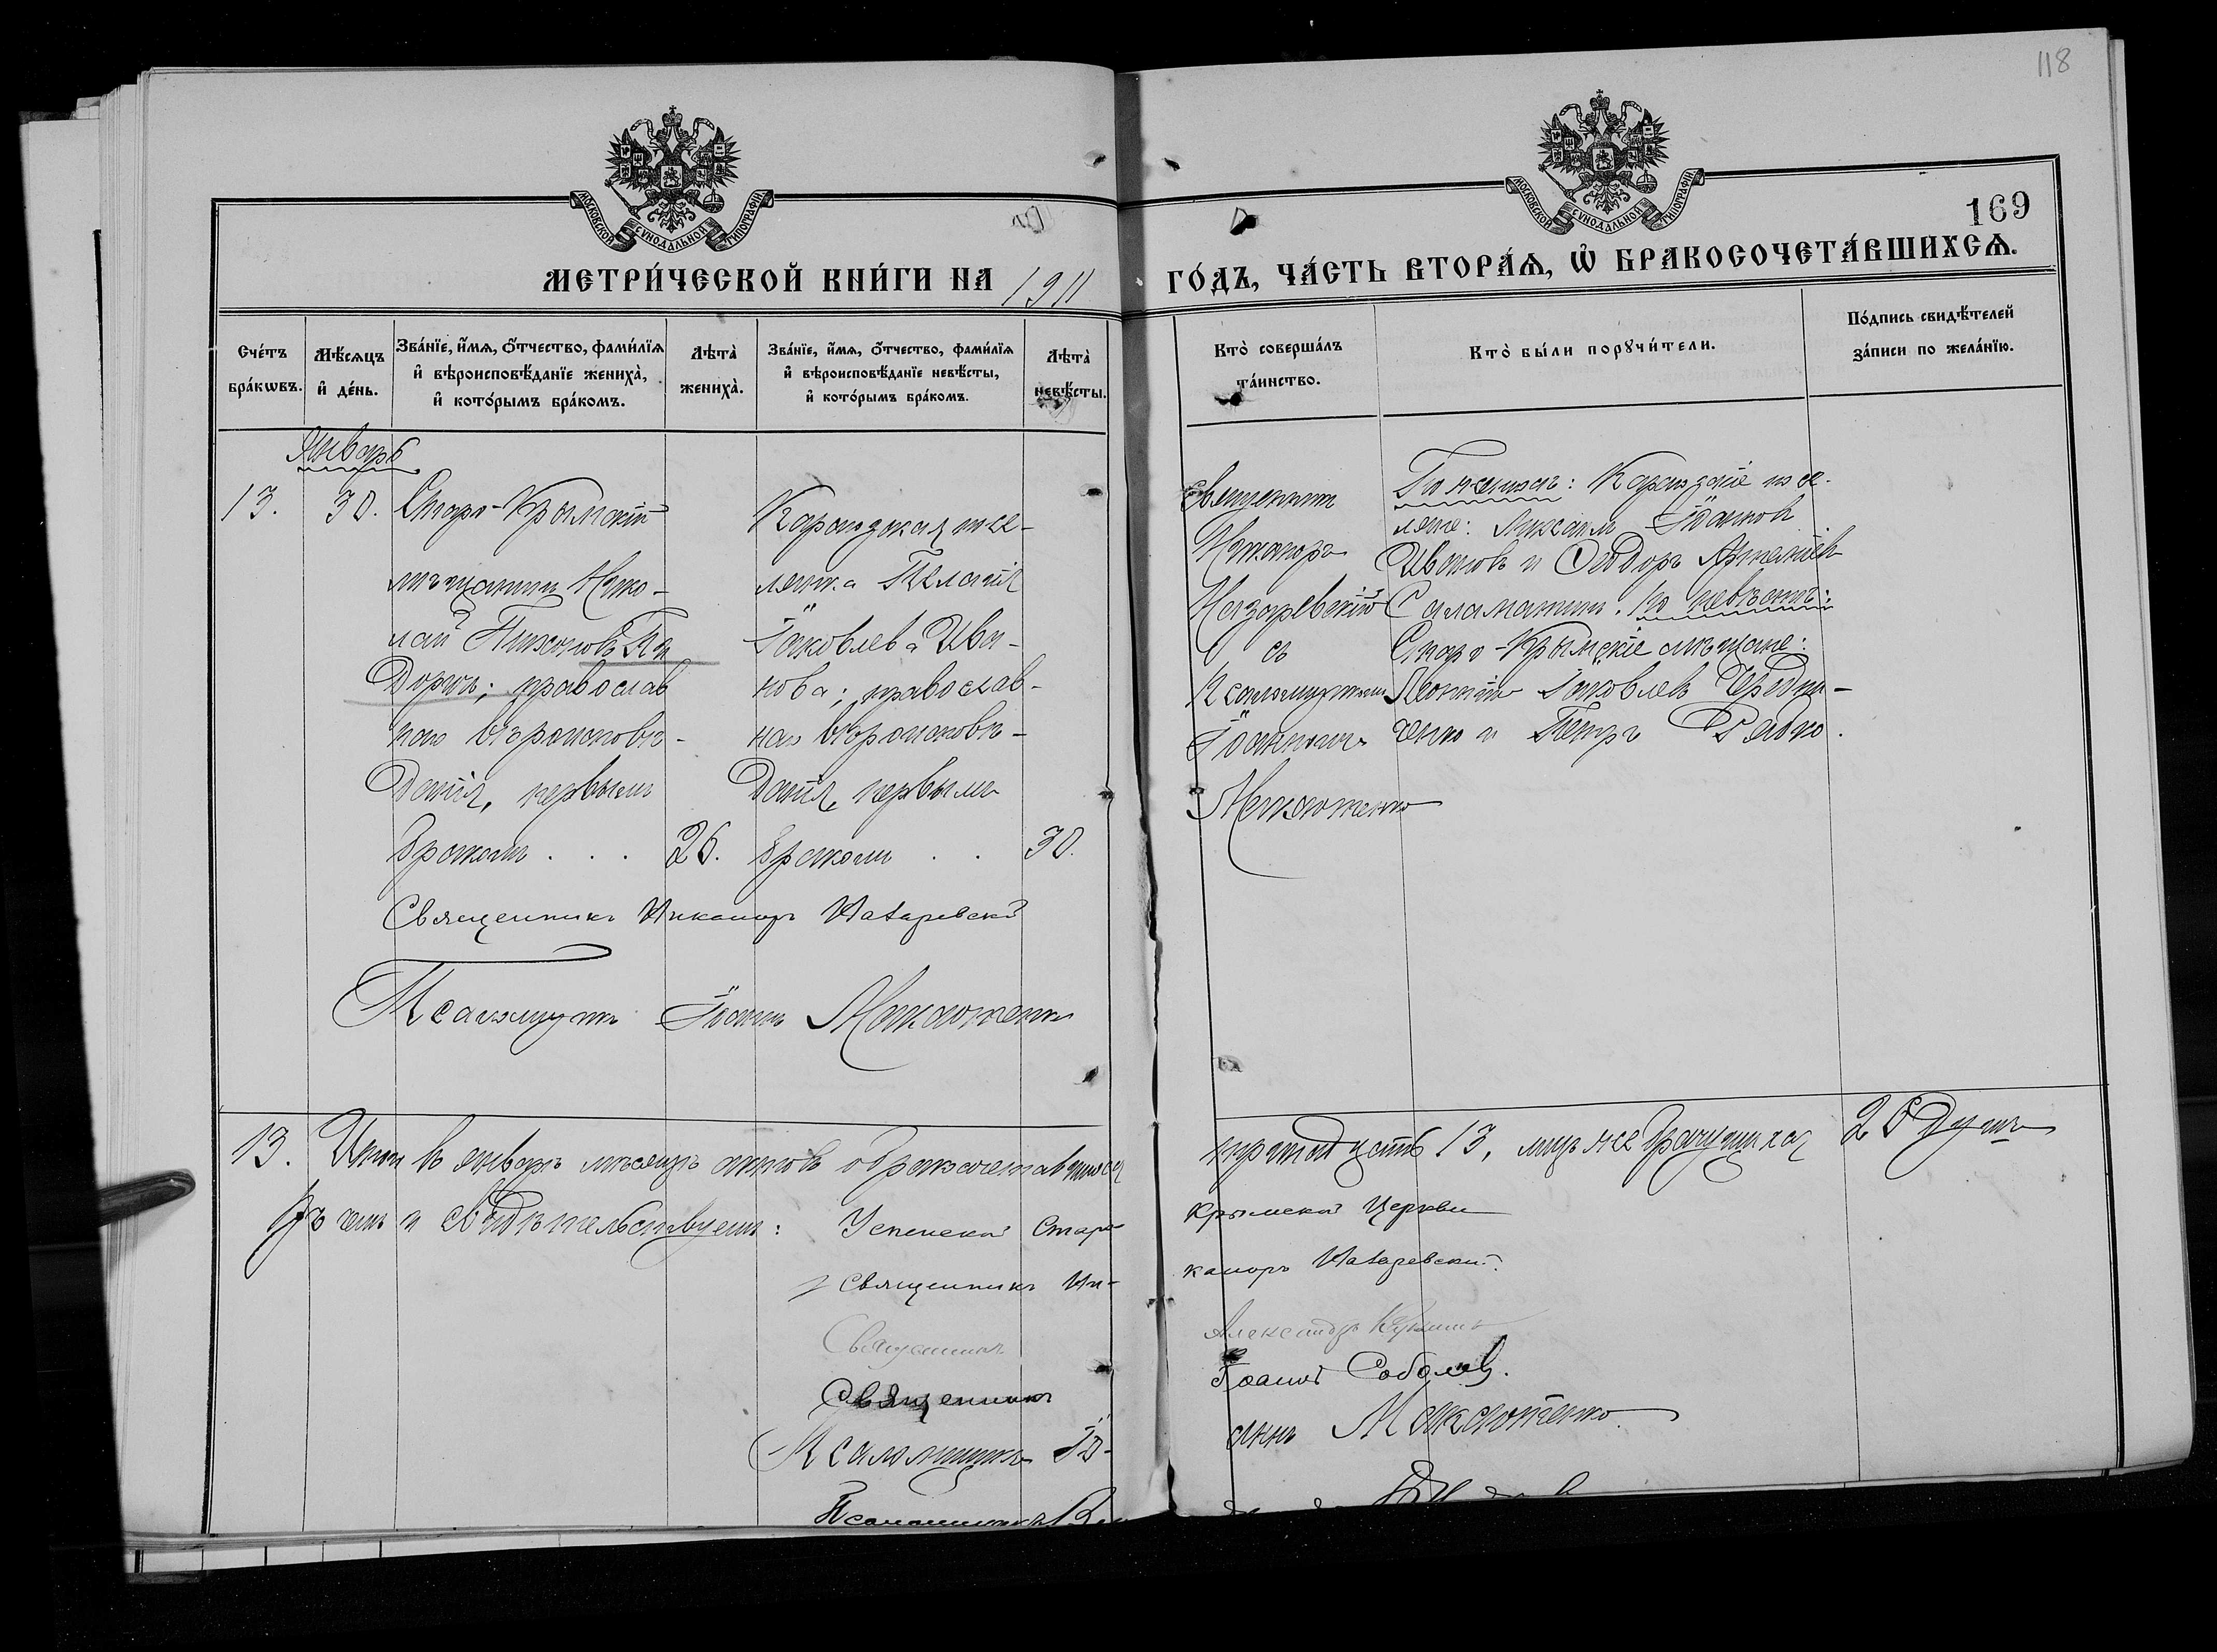 118
169
МОСКОВСКОЙ СѴНОДАЛЬНОЙ ТИПОГРАФІИ
МОСКОВСКОЙ СѴНОДАЛЬНОЙ ТИПОГРАФІИ
МЕТРИ́ЧЕСКОЙ КНИ́ГИ НА 1911 ГО́ДЪ, ЧА́СТЬ ВТОРА́Ѧ, Ѡ҆ БРАКОСОЧЕТА́ВШИХСѦ.
Сче́тъ бра́кѡвъ.
Мѣ́сѧцъ и҆ де́нь.
Зва́нїе, и҆́мѧ, ѻ҆́тчество, фами́лїѧ и҆ вѣроисповѣ́данїе жениха̀, и҆ кото́рымъ бра́комъ.
Лѣта̀ жениха̀.
Зва́нїе, и҆́мѧ, ѻ҆́тчество, фами́лїѧ и҆ вѣроисповѣ́данїе невѣ́сты, и҆ кото́рымъ бра́комъ.
Лѣта̀ невѣ́сты.
Кто̀ соверша́лъ та́инство.
Кто̀ бы́ли порꙋчи́тели.
По́дпись свидѣ́телей за́писи по жела́нїю.
Январь
13.
30.
Старо-Крымскій
мѣщанинъ Нико-
лай Тихоновъ Пи
доричъ; православ
наго вѣроисповѣ-
данія, первымъ
бракомъ . . .
26.
Карагозская посе-
лянка Пелагія
Іаковлева Ива-
нова; православ-
наго вѣроисповѣ-
данія, первымъ
бракомъ . .
30.
Священникъ
Никаноръ
Назаревскій
съ
Псаломщикомъ
Іоанномъ
Максютенко
По женихѣ: Карагозскіе посе-
ляне: Михаилъ Іоанновъ
Ивановъ и Ѳеодоръ
Саламатинъ. По невѣстѣ:
Старо-Крымскіе мѣщане:
Леонтій Іаковлевъ Чередни-
ченко и Петръ Рябко.
Священникъ Никаноръ Назаревскій
Псаломщикъ Іоаннъ Максютенко
13. Итого въ январѣ мѣсяцѣ актовъ о бракосочетавшихся тринадцать 13, лицъ же брачущихся 26 душъ
Въ чемъ и свидѣтельствуемъ: Успенской Старо-
Крымской Церкви
Священникъ Ни-
каноръ Назаревскій.
Священникъ Александръ
Священникъ Іоаннъ Соболевъ.
Псаломщикъ Іо-
аннъ Максютенко.
Псаломщикъ